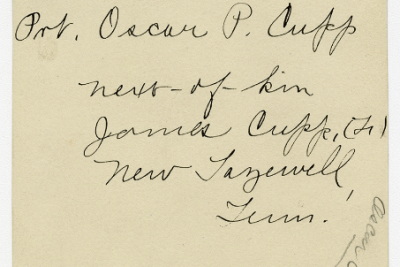 Pvt. Oscar P. Cupp
next-of-kin
James Cupp, (Fr)
New Tazewell,
Tenn.
Oscar